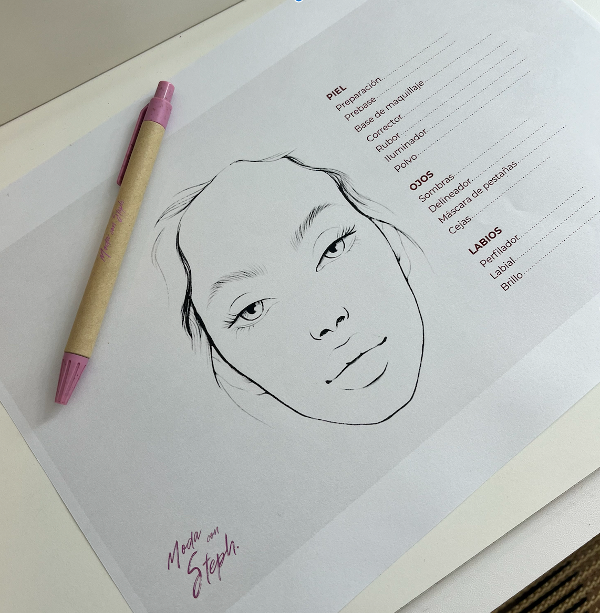 PIEL
Preparación
Prebase
Base de maquillaje
Corrector
Rubor
Iluminador
Polvo
OJOS
Sombras
Delineador
Máscara de pestañas
Cejas
LABIOS
Perfilador
Labial
Brillo
Moda con
Steph.